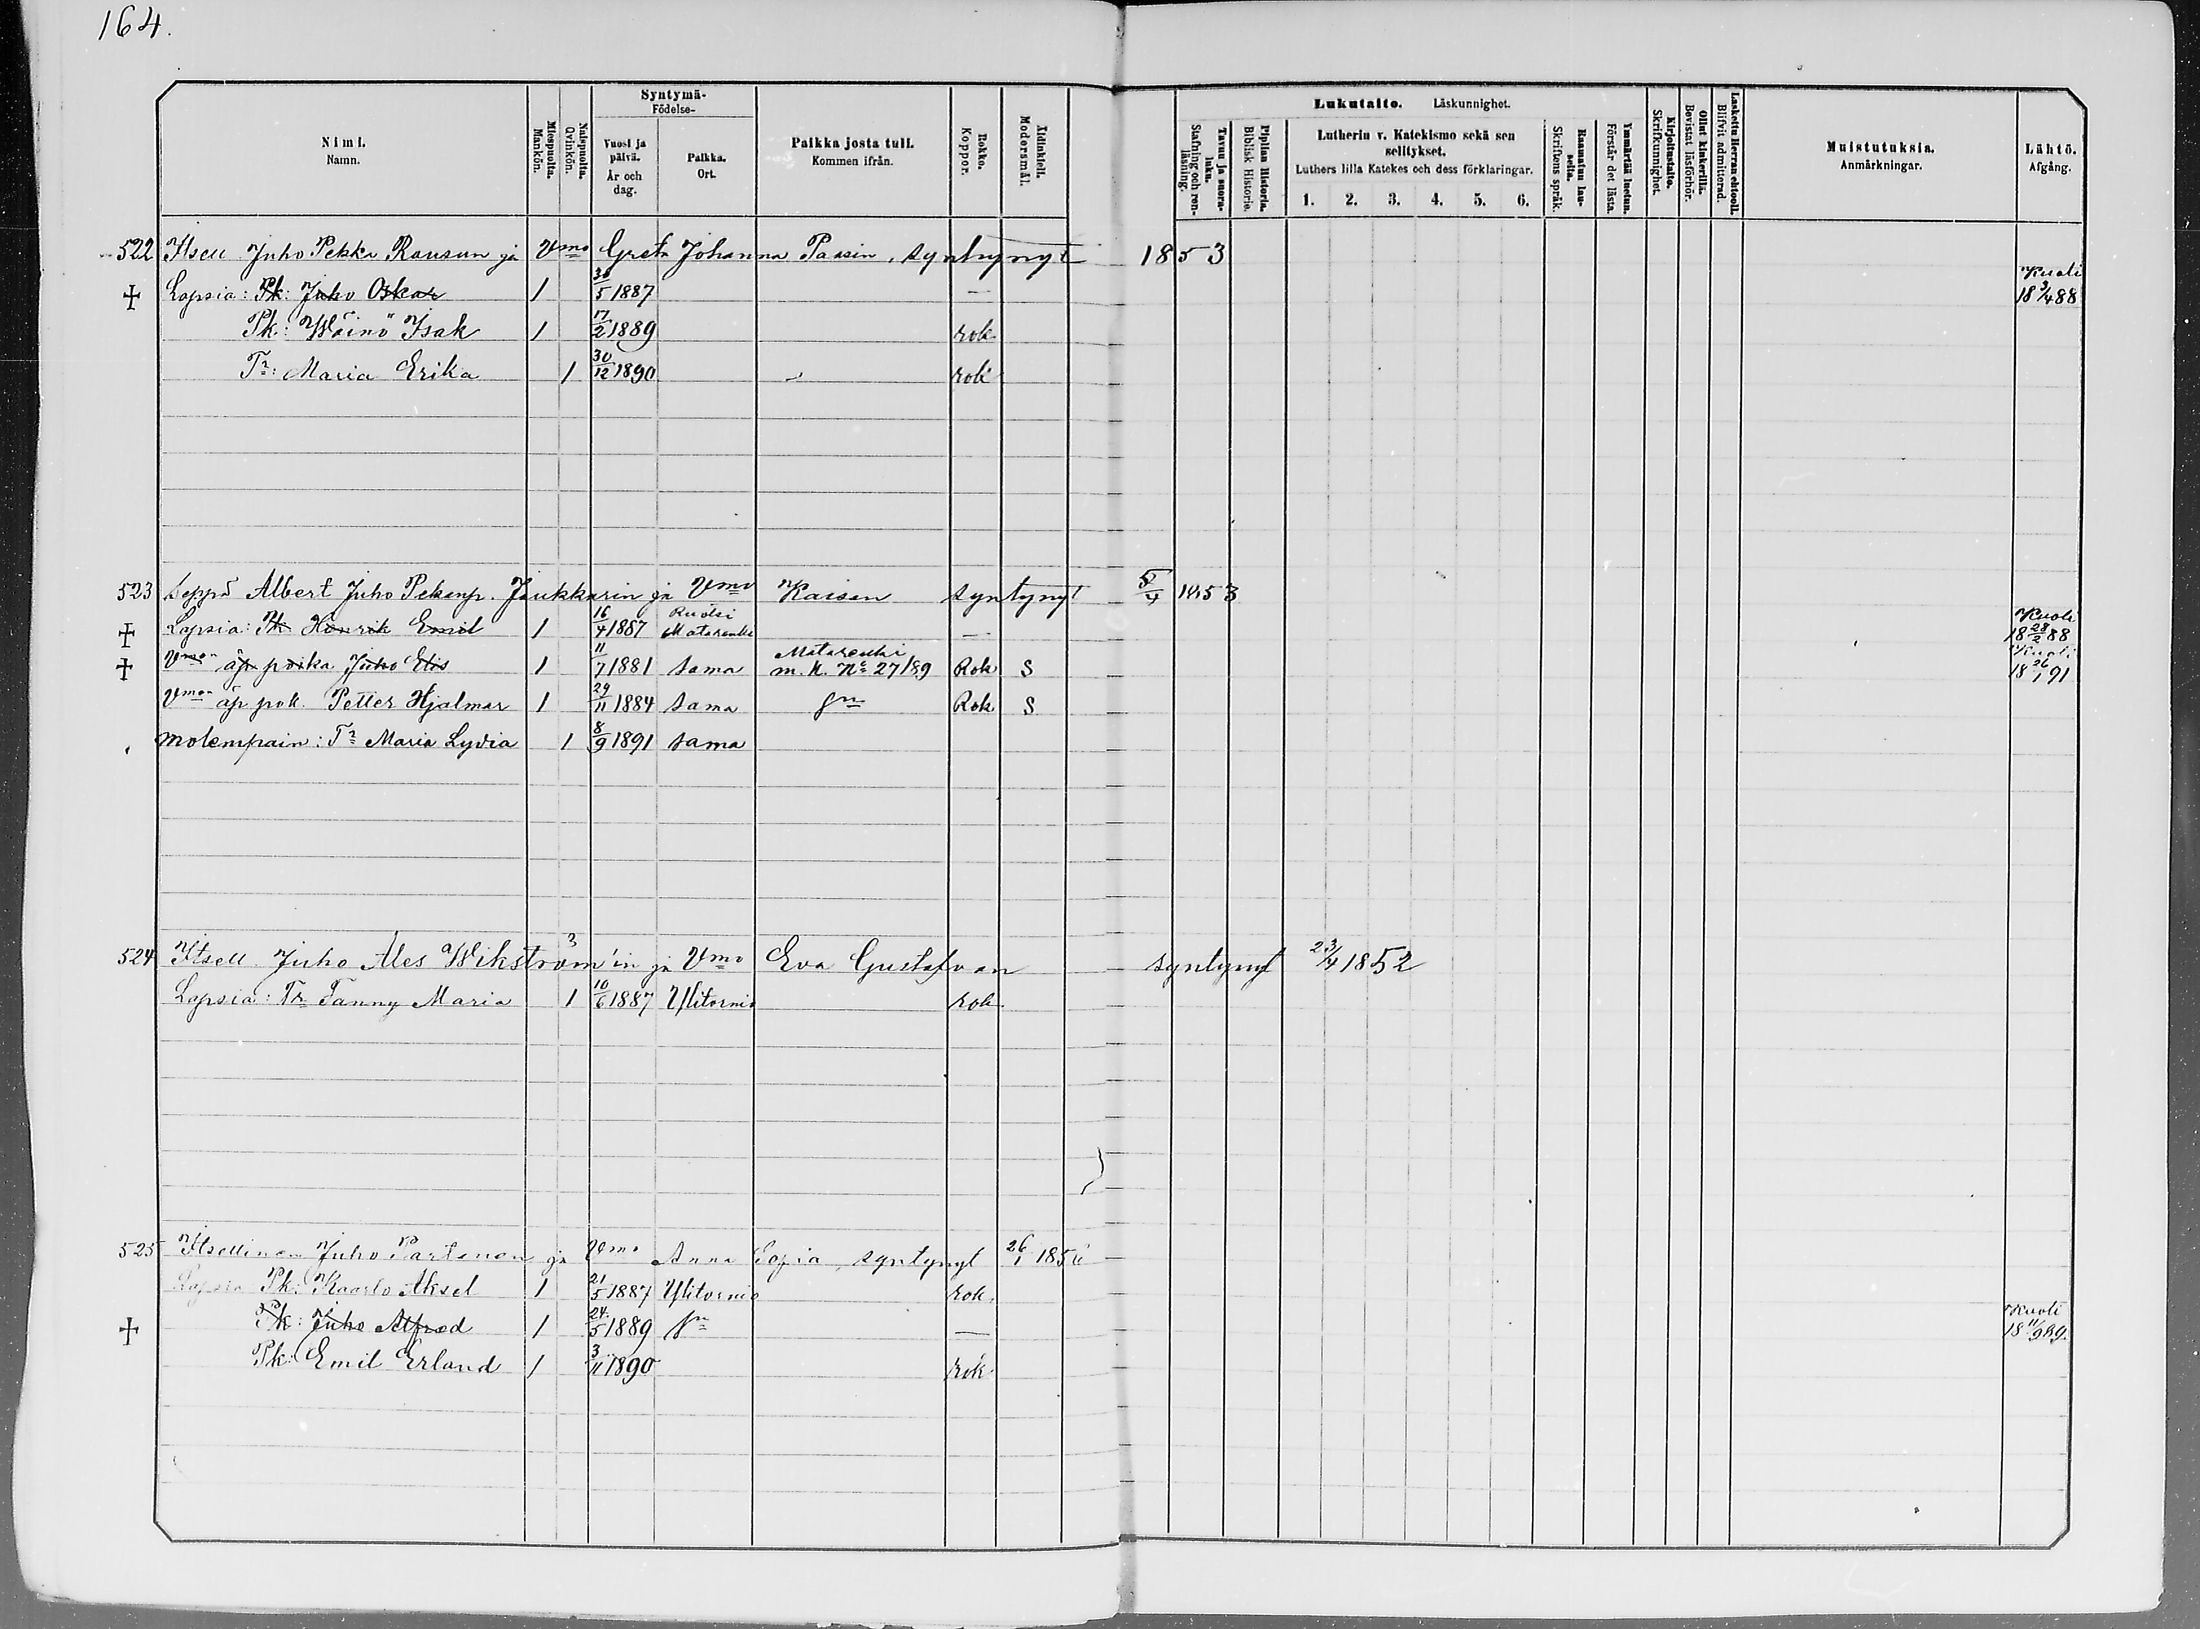 164.
Syntymä-
Födelse-
Nimi.
Namn.
Miespuolia.
Mankön.
Naispuolia.
Qvinkön.
Vuosi ja päivä.
År och dag.
Paikka.
Ort.
Paikka josta tuli.
Kommen ifrån.
Rokko.
Koppor.
Äidinkieli.
Modersmål.
Tavuu ja suora-luku.
Stafning och ren-läsning.
Piplian Historia.
Biblisk Historie.
Lukutaito. Läskunnighet.
Lutherin v. Katekismo sekä sen selitykset.
Luthers lilla Katekes och dess förklaringar.
1. 2. 3. 4. 5. 6.
Raamatun lau-seita.
Skriftens språk.
Ymmärtää luetun.
Förstår det lästa.
Kirjoitustaito.
Skrifkunnighet.
Ollut kinkerillä.
Bevistat läsförhör.
Laskettu Herran ehtool.
Blifvit admitterad.
Muistutuksia.
Anmärkningar.
Lähtö.
Afgång.
522 Itsell Juho Pekka Rousun ja Vmo Greta Johanna Paasin, syntynyt 1853
Lapsia: Pk: Juho Oskar 1 30/5 1887 — Kuoli 18 3/4 88
Pk: Wäinö Isak 1 17/2 1889 rok
Tr: Maria Erika 1 30/12 1890 rok
523 Seppä Albert Juho Pekanp. Jaukkarin ja Vmo Kaisan syntynyt 5/4 1853
Lapsia: Pk Henrik Emil 1 16/4 1887 Ruotsi Matarenki — Kuoli 18 28/2 88
Vmon äp poika Juho Elis 1 11/7 1881 sama Matarenki m. k. No 27/89 Rok S Kuoli 18 26/1 91
Vmon äp poik Petter Hjalmar 1 29/11 1884 sama Rok S
molempain: Tr Maria Lydia 1 8/9 1891 sama
524 Itsell Juho Ales Wikström'in ja Vmo Eva Gustafvan syntynyt 23/4 1852
Lapsia: Tr Fanny Maria 1 10/6 1887 Ylitornio rok
525 Itsellinen Juho Partanen ja Vmo Anna Sofia, syntynyt 26/1
Lapsia Pk: Kaarlo Aksel 1 21/5 1887 Ylitornio rok.
Pk: Juho Alfred 1 24/5 1889 — Kuoli 18 11/9 89.
Pk: Emil Erland 1 3/11 1890 rok